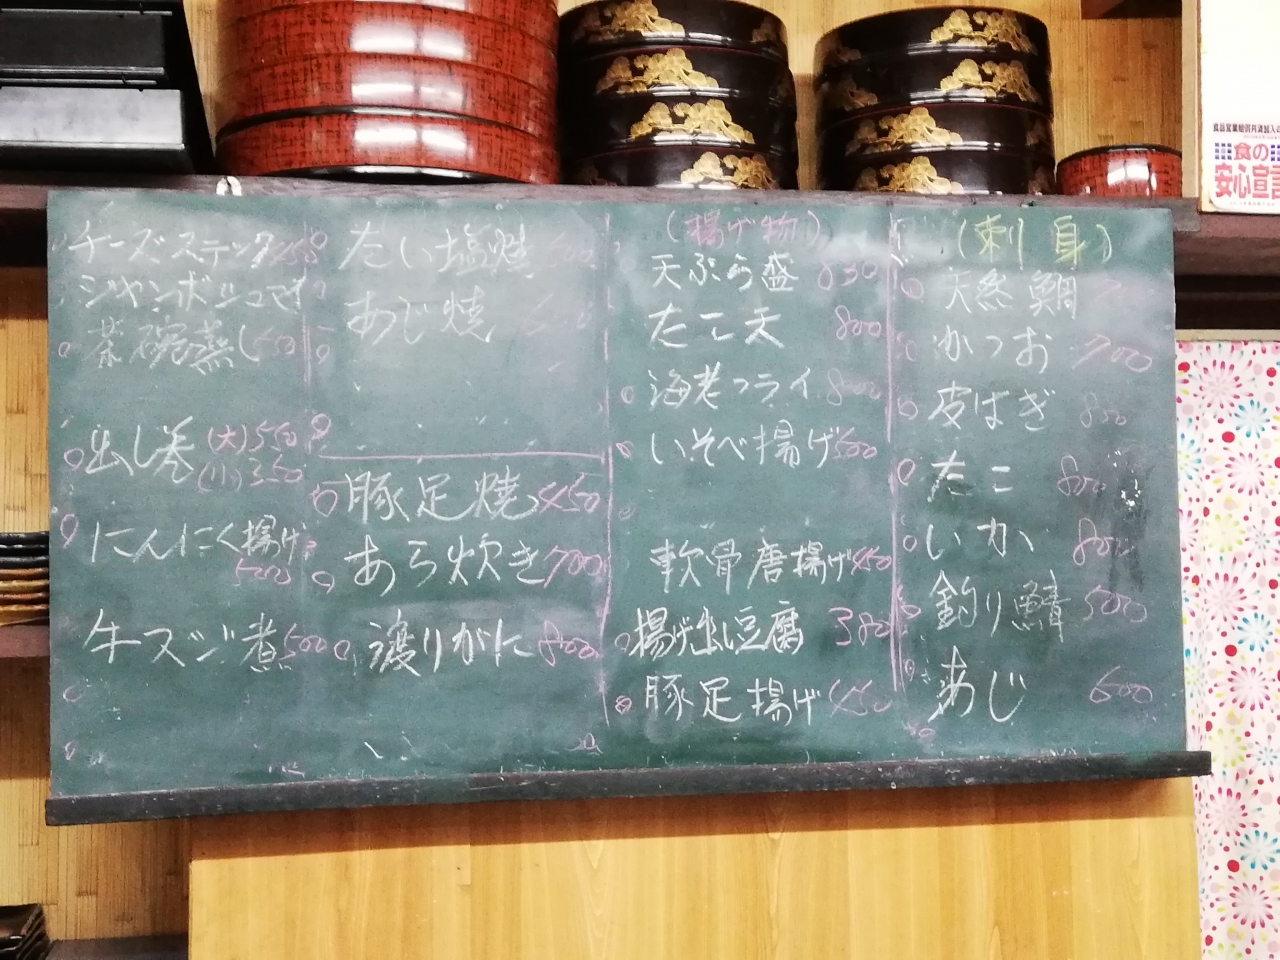 チーズステック
ジャンボシュウマイ
茶碗蒸し
出し巻 (大)550
(小)350
にんにく揚げ
500
牛スジ煮 500
たい塩焼
あじ焼
豚足焼 450
あら炊き 700
渡りがに 800
(揚げ物)
天ぷら盛 850
たこ天 800
海老フライ 800
いそべ揚げ 500
軟骨唐揚げ 450
揚げ出し豆腐 380
豚足揚げ 450
(刺身)
天然鯛
かつお 700
皮はぎ 850
たこ 800
いか 800
釣り鯖 500
あじ 600
食の
安心宣言